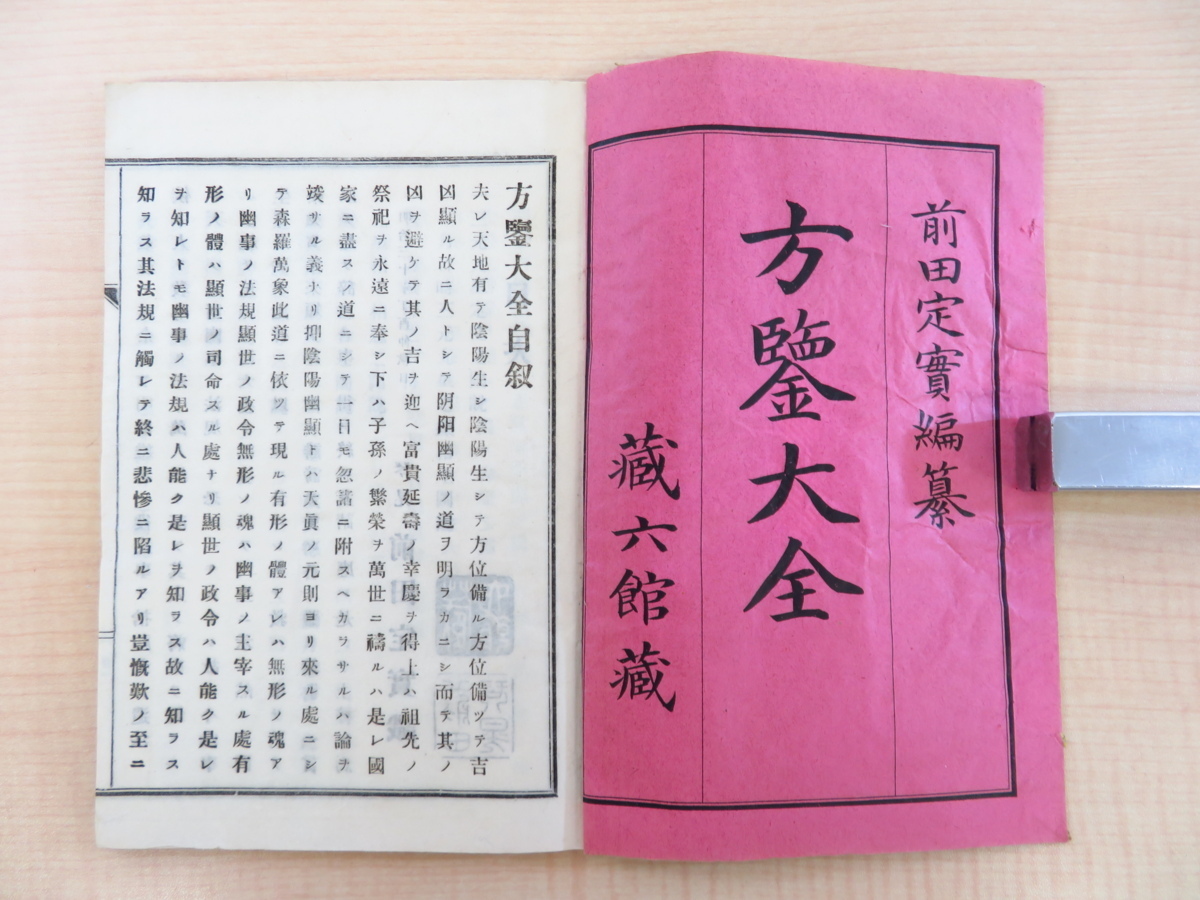 前田定實編纂
方鑒大全
藏六館藏
方鑒大全自叙
夫レ天地有テ陰陽生シ陰陽生シテ方位備ル方位備ツテ吉
凶顯ル故ニ人トシテ阴阳幽顯ノ道ヲ明ラカニシ而テ其ノ
凶ヲ避ケテ其ノ吉ヲ迎へ富貴延壽ノ幸慶ヲ得上ハ祖先ノ
祭祀ヲ永遠ニ奉シ下ハ子孫ノ繁榮ヲ萬世ニ禱ルハ是レ國
家ニ盡スノ道ニシテ一日モ忽諸ニ附スヘカラサルハ論ヲ
竢サル義ナリ抑陰陽幽顯トハ天眞ノ元則ヨリ來ル處ニシ
テ森羅萬象此道ニ依ツテ現ル有形ノ體アレハ無形ノ魂ア
リ幽事ノ法規顯世ノ政令無形ノ魂ハ幽事ノ主宰スル處有
形ノ體ハ顯世ノ司命スル處ナリ顯世ノ政令ハ人能ク是レ
ヲ知レトモ幽事ノ法規ハ人能ク是レヲ知ラス故ニ知ラス
知ラス其法規ニ觸レテ終ニ悲慘ニ陷ルアリ豈慨歎ノ至ニ